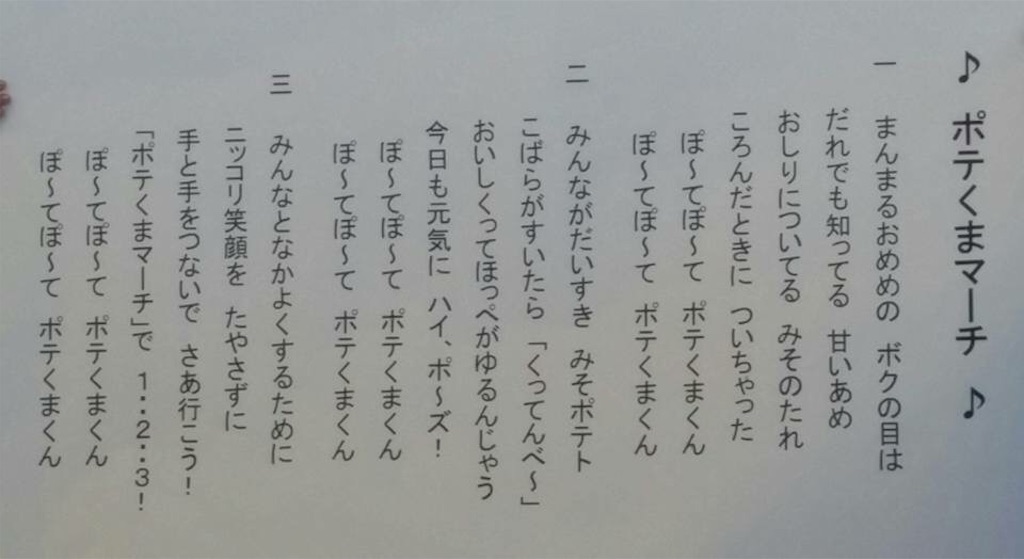 ♪ ポテくまマーチ ♪
一 まんまるおめめの ボクの目は
だれでも知ってる 甘いあめ
おしりについてる みそのたれ
ころんだときに ついちゃった
ぽ～てぽ～て ポテくまくん
ぽ～てぽ～て ポテくまくん
二 みんながだいすき みそポテト
こばらがすいたら 「くってんべ～」
おいしくってほっぺがゆるんじゃう
今日も元気に ハイ、ポ～ズ！
ぽ～てぽ～て ポテくまくん
ぽ～てぽ～て ポテくまくん
三 みんなとなかよくするために
ニッコリ笑顔を たやさずに
手と手をつないで さあ行こう！
「ポテくまマーチ」で 1・・2・・3！
ぽ～てぽ～て ポテくまくん
ぽ～てぽ～て ポテくまくん